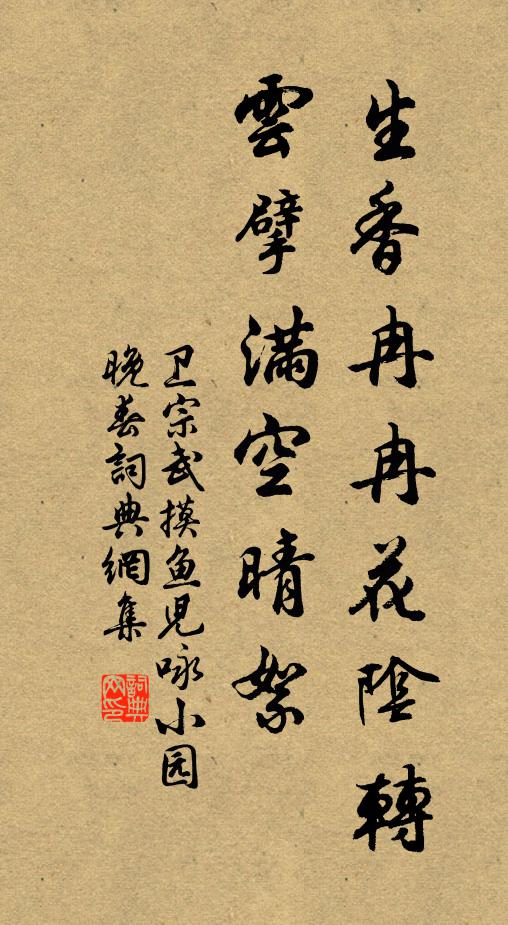 生香冉冉花陰轉
雲擘滿空晴絮
卫宗武摸鱼児咏小园
晚春詞典網集
詞典網印